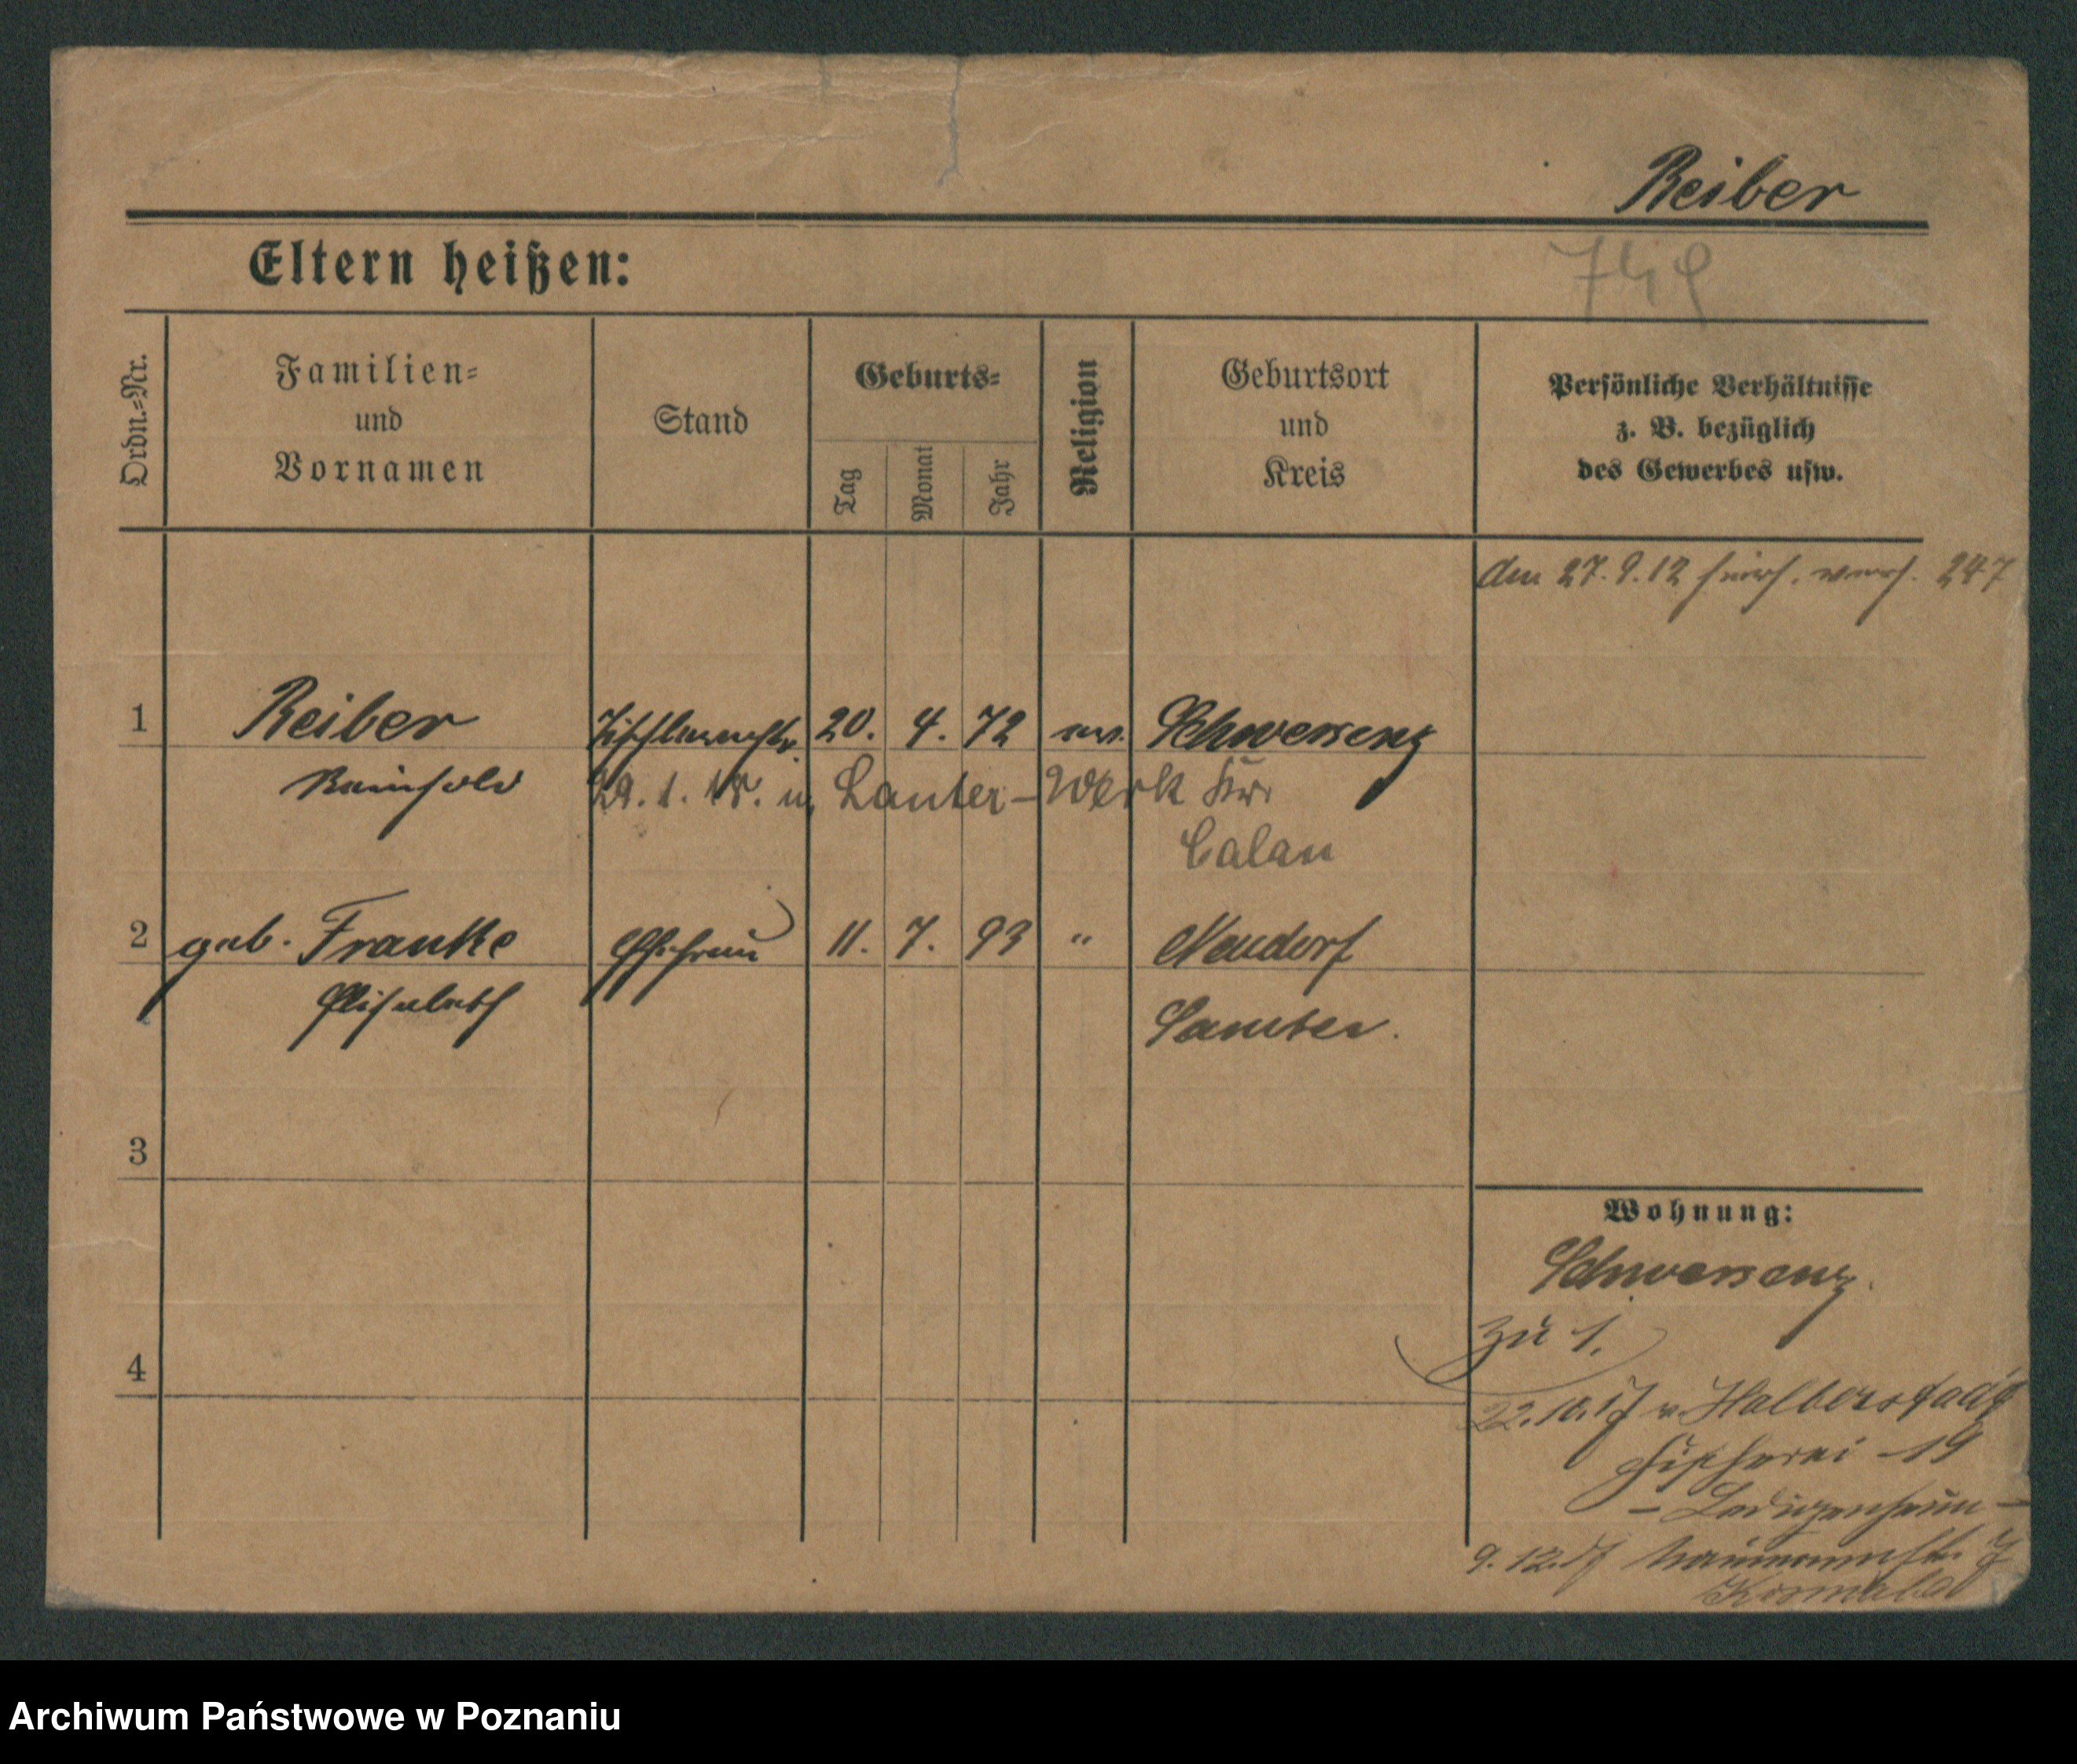 Reiber
749
Eltern heißen:
Ordn.=Nr.
Familien=
und
Vornamen
Stand
Geburts=
Tag
Monat
Jahr
Religion
Geburtsort
und
Kreis
Persönliche Verhältnisse
z. B. bezüglich
des Gewerbes usw.
den 27. 9. 12 247
1 Reiber Tischlermstr. 20. 4. 72 ev. Schwersenz
Reinhold 29. 1. 18. n. Lauter-Werk Kr.
Calau
2 geb. Franke Ehefrau 11. 7. 93 " Neudorf
Elisabeth Samter.
3
Wohnung:
Schwersenz.
zu 1.
4
22.10.17 v. Halberstadt
19
- Ledigenheim -
9.12.17 7